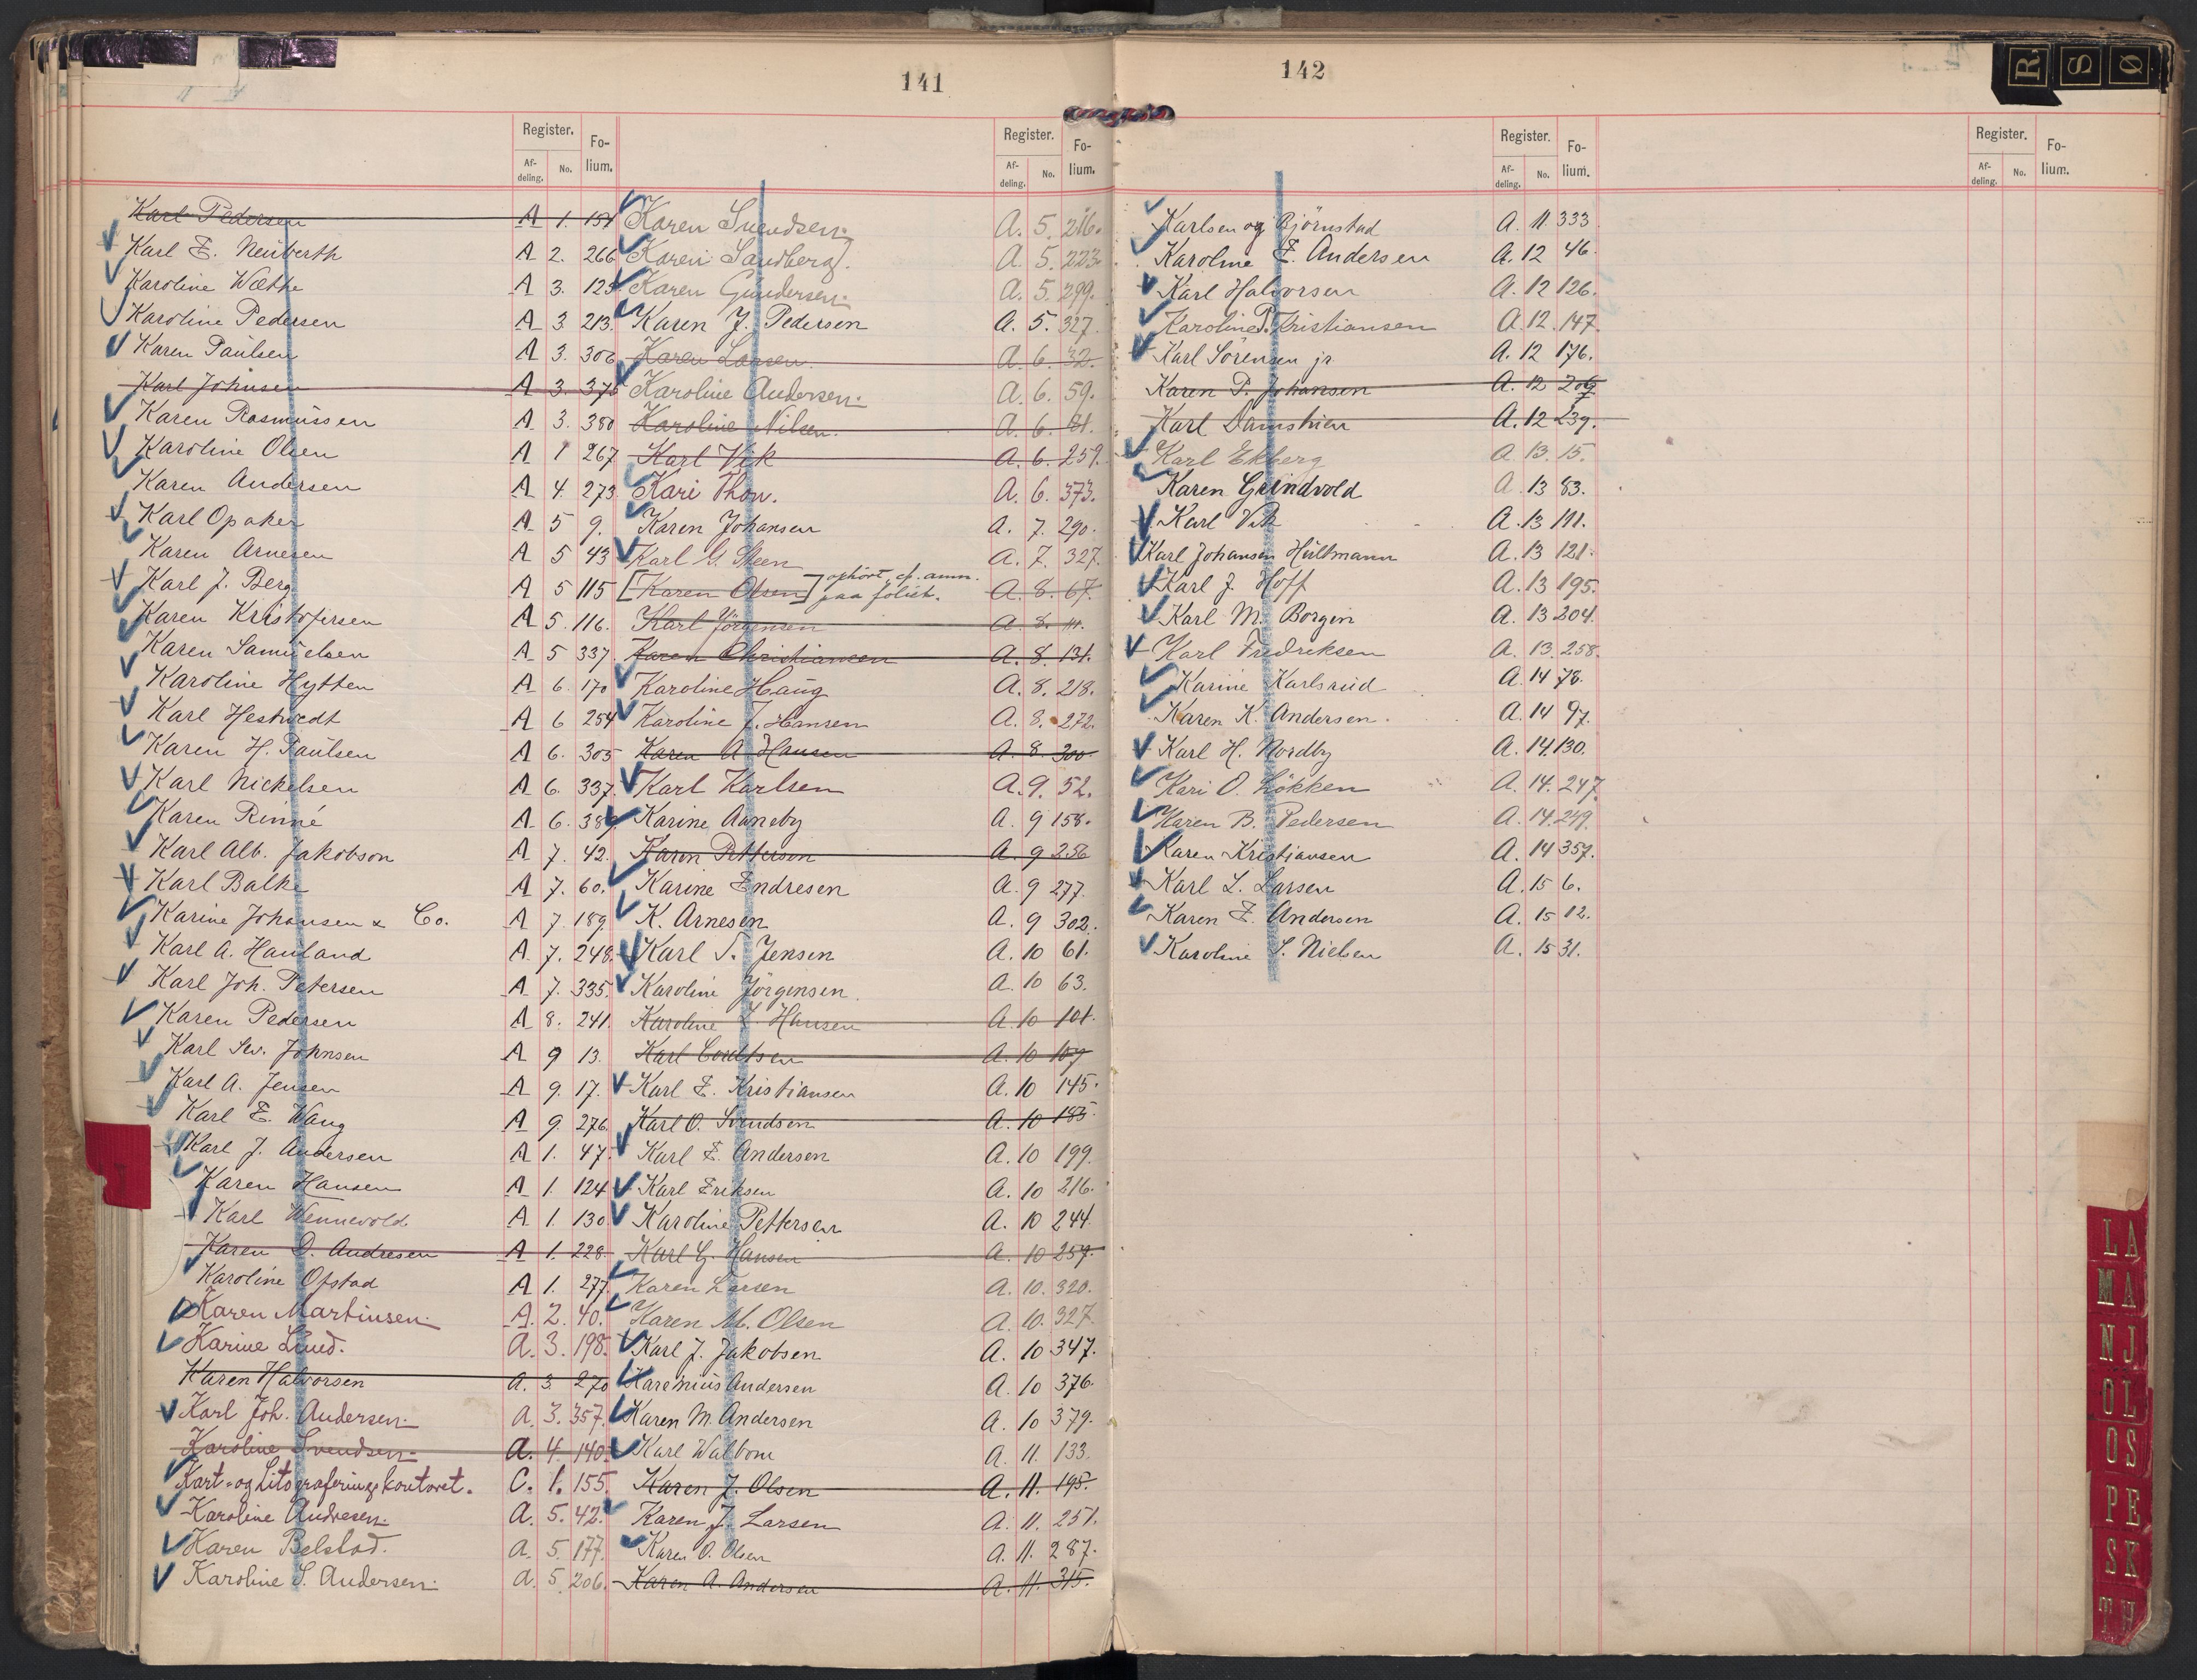 141
Register. Fo-lium.
Af-deling. No.
Karl Pedersen A 1. 154
Karl E. Neüberth A 2. 266
Karoline Wæthe A 3. 125
Karoline Pedersen A 3 213.
Karen Paülsen A 3. 306
Karl Johnsen A 3. 375
Karen Rasmüssen A 3. 380
Karoline Olsen A 1 267
Karen Andersen A 4. 273
Karl Opaker A 5 9.
Karen Arnesen A 5 43
Karl J. Berg A 5 115
Karen Kristofersen A 5. 116.
Karen Samüelsen A 5 337
Karoline Hytten A 6. 170
Karl Hestvedt A 6 254
Karen H. Paülsen A 6. 305
Karl Nickelsen A 6. 337.
Karen Rinné A 6. 389
Karl Alb. Jakobson A 7. 42.
Karl Balke A 7. 60.
Karine Johansen & Co. A 7. 189.
Karl A. Hauland A 7. 248.
Karl Joh. Petersen A 7. 335.
Karen Pedersen A 8. 241.
Karl Sev. Johnsen A 9 13.
Karl A. Jensen A 9. 17.
Karl E. Wang A 9. 276
Karl J. Andersen A 1. 47.
Karen Hansen A 1. 124
Karl Wennevold A 1. 130
Karen D. Andresen A 1. 228.
Karoline Opstad A 1. 277.
Karen Martinsen. A. 2. 40.
Karine Lund. A. 3. 198.
Karen Halvorsen A. 3 270
Karl Joh. Andersen. A. 3. 357.
Karoline Svendsen. A. 4. 140.
Kart- og Litograferingskontoret. C. 1. 155.
Karoline Andresen. A. 5. 42.
Karen Belstad. A. 5. 177.
Karoline S. Andersen. A. 5. 206.
Register. Fo-lium.
Af-deling. No.
Karen Svendsen. A. 5. 216.
Karen Sandberg. A. 5. 223.
Karen Gündersen. A. 5. 299.
Karen J. Pedersen A. 5. 327.
Karen Larsen. A. 6. 32.
Karoline Andersen. A. 6. 59.
Karoline Nilsen. A. 6. 81.
Karl Vik A. 6. 259.
Kari Thon. A. 6. 373.
Karen Johansen A. 7. 290.
Karl G. Steen A. 7. 327.
[Karen Olsen] ophørt, cf. anm. paa foliet. A. 8. 67.
Karl Jörgensen A. 8. 111.
Karen Christiansen A. 8. 131.
Karoline Haüg A. 8. 218.
Karoline J. Hansen A. 8. 272.
Karen A Hansen A. 8 300.
Karl Karlsen A. 9. 52.
Karine Aaneby A. 9 158.
Karen Pettersen A. 9 256
Karine Endresen A. 9 277
K. Arnesen A. 9 302.
Karl S. Jensen A. 10 61.
Karoline Jörgensen. A. 10 63.
Karoline L. Hansen A. 10 101.
Karl Cordtsen A. 10 109
Karl E. Kristiansen A. 10 145.
Karl O. Svendsen A. 10 185.
Karl E. Andersen A. 10 199.
Karl Eriksen A. 10 216.
Karoline Pettersen A. 10 244.
Karl G. Hansen A. 10 257.
Karen Larsen A. 10. 320.
Karen M. Olsen A. 10. 327.
Karl J. Jakobsen A. 10 347.
Karenius Andersen A. 10 376.
Karen M. Andersen A. 10 379.
Karl Walbom A. 11. 133.
Karen J. Olsen A. 11. 195.
Karen J. Larsen A. 11. 251.
Karen O. Olsen A. 11. 287.
Karen A. Andersen A. 11. 315.
142
Register. Fo-lium.
Af-deling. No.
Karlsen og Björnstad A. 11 333
Karoline E. Andersen A. 12 46.
Karl Halvorsen A. 12 126.
Karoline P. Kristiansen A. 12. 147.
Karl Sörensen jr A. 12 176.
Karen P. Johansen A. 12 209
Karl Damstien A. 12 239.
Karl Ekberg A. 13. 15.
Karen Grindvold A. 13 83.
Karl Vik A. 13 111.
Karl Johansen Hültmann A. 13 121.
Karl J. Hoff A. 13 195.
Karl M. Borgen A. 13 204.
Karl Fredriksen A. 13. 258.
Karine Karlsrud A. 14 78.
Karen K. Andersen. A. 14 97.
Karl H. Nordby A. 14. 130.
Kari O. Lökken A. 14. 247.
Karen B. Pedersen A. 14. 249.
Karen Kristiansen A. 14 357.
Karl L. Larsen A. 15 6.
Karen E. Andersen A. 15 12.
Karoline S. Nielsen A. 15 31.
Register. Fo-lium.
Af-deling. No.
R. S Ø
LA
MA
NJ
OL
OS
PE
SK
TH